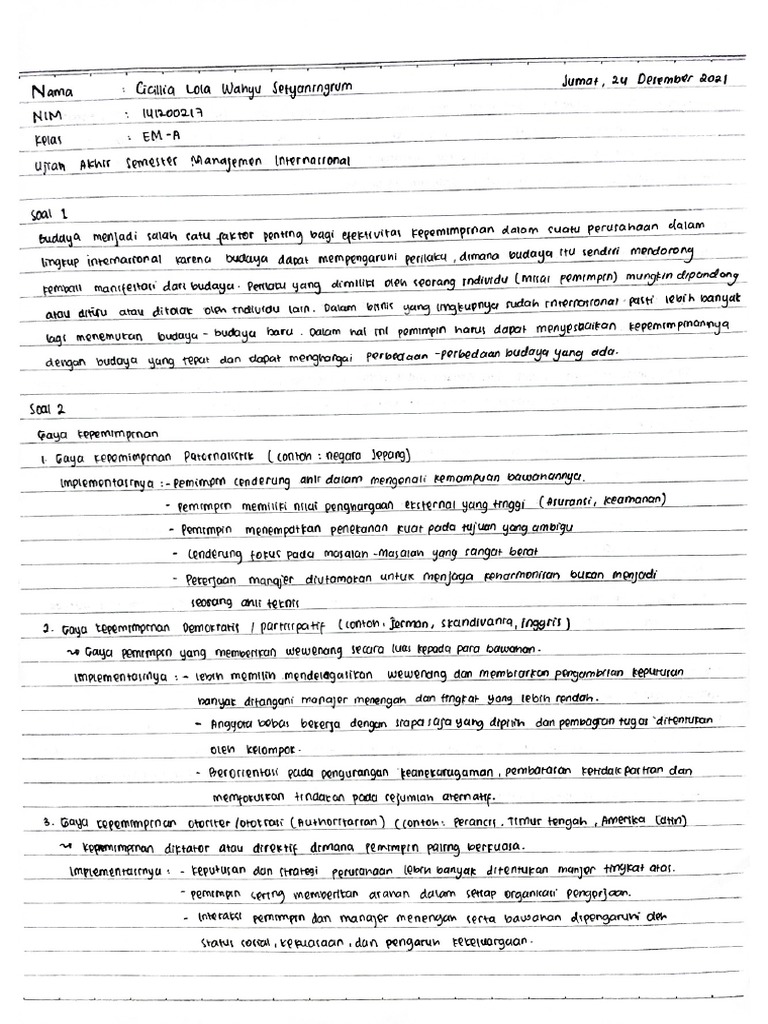 Nama : Cicillia Lola Wahyu Setyaningrum Jumat, 24 Desember 2021
NIM : 141200217
Kelas : EM-A
Ujian Akhir Semester Manajemen Internasional
Soal 1
Budaya menjadi salah satu faktor penting bagi efektivitas kepemimpinan dalam suatu perusahaan dalam
lingkup internasional karena budaya dapat mempengaruhi perilaku, dimana budaya itu sendiri mendorong
kembali manifestasi dari budaya. Perilaku yang dimiliki oleh seorang individu (misal pemimpin) mungkin dipandang
atau ditiru atau ditolak oleh individu lain. Dalam bisnis yang lingkupnya sudah internasional pasti lebih banyak
lagi menemukan budaya-budaya baru. Dalam hal ini pemimpin harus dapat menyesuaikan kepemimpinannya
dengan budaya yang tepat dan dapat menghargai perbedaan-perbedaan budaya yang ada.
Soal 2
Gaya kepemimpinan
1. Gaya kepemimpinan Paternalistik (contoh : negara Jepang)
Implementasinya : - Pemimpin cenderung ahli dalam mengenali kemampuan bawahannya.
- Pemimpin memiliki nilai penghargaan eksternal yang tinggi (Asuransi, keamanan)
- Pemimpin menempatkan penekanan kuat pada tujuan yang ambigu
- Cenderung fokus pada masalah-masalah yang sangat berat
- Pekerjaan manajer diutamakan untuk menjaga keharmonisan bukan menjadi
seorang ahli teknis
2. Gaya kepemimpinan Demokratis / partisipatif (contoh : Jerman, Skandivania, Inggris)
~ Gaya pemimpin yang memberikan wewenang secara luas kepada para bawahan.
Implementasinya : - lebih memilih mendelegasikan wewenang dan membiarkan pengambilan keputusan
banyak ditangani manajer menengah dan tingkat yang lebih rendah.
- Anggota bebas bekerja dengan siapa saja yang dipilih dan pembagian tugas ditentukan
oleh kelompok.
- Berorientasi pada pengurangan keanekaragaman, pembatasan ketidakpastian dan
memfokuskan tindakan pada sejumlah alternatif.
3. Gaya kepemimpinan otoriter/otokrasi (Authoritarian) (contoh : Perancis, Timur tengah, Amerika Latin)
~ kepemimpinan diktator atau direktif dimana pemimpin paling berkuasa.
Implementasinya : - keputusan dan strategi perusahaan lebih banyak ditentukan manjer tingkat atas.
- pemimpin sering memberikan arahan dalam setiap organisasi pengerjaan.
- Interaksi pemimpin dan manajer menengah serta bawahan dipengaruhi oleh
status sosial, kekuasaan, dan pengaruh kekeluargaan.